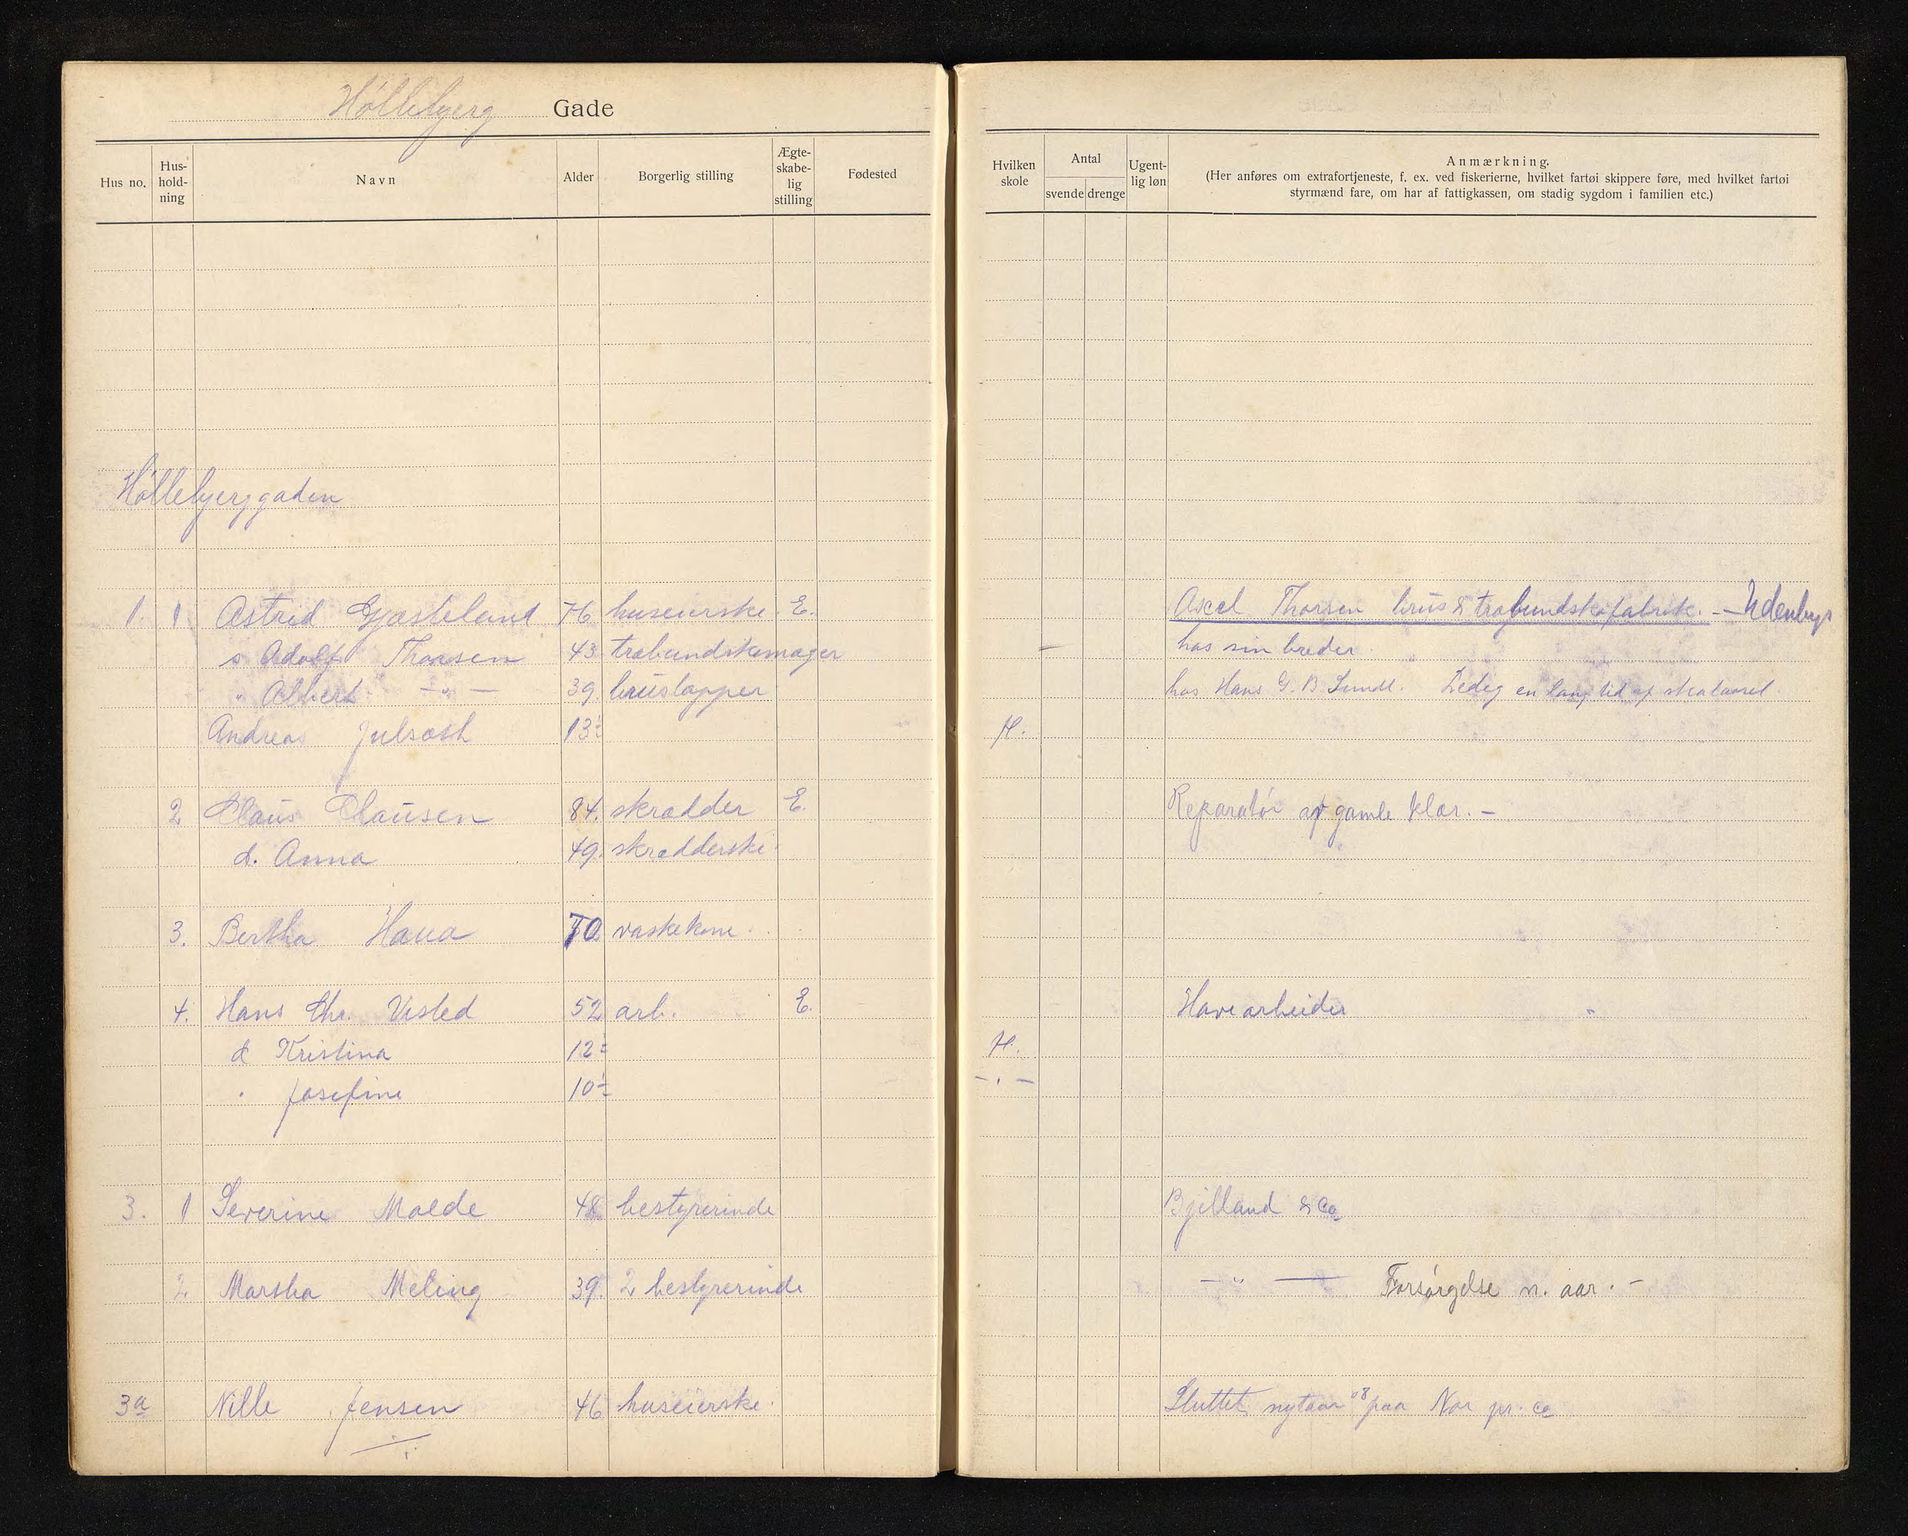 Høllebjerg Gade
Hus no. Hus-hold-ning Navn Alder Borgerlig stilling Ægte-skabe-lig stilling Fødested
Hvilken skole Antal svende drenge Ugent-lig løn Anmærkning.
(Her anføres om extrafortjeneste, f. ex. ved fiskerierne, hvilket fartøi skippere føre, med hvilket fartøi
styrmænd fare, om har af fattigkassen, om stadig sygdom i familien etc.)
Høllebjerggaden
1. 1 Astrid Gjæsteland 76 huseierske. E. Axel Thorsen brus & træbundskofabrik. - Udenbys
s Adolf Thorsen 43 træbundskomager - hos sin broder
" Albert -"- 39. brustapper hos Hans G. B. Lunde. Ledig en lang tid af skataaret.
Andreas 13 H.
2 Claus Clausen 84. skrædder E. Reparatør af gamle klær. -
d. Anna 49. skrædderske.
3. Bertha Haua 70 vaskekone.
4. Hans Chr. Visted 52 arb. E. Havearbeider
d Kristina 12 H.
" Josefine 10 -"-
3. 1 Severine Molde 48 bestyrerinde Bjelland & Co
2 Martha Meling 39. 2 bestyrerinde -"- Forsørgelse n. aar. -
3a Nille Jensen 46 huseierske. Sluttet nytaar 08 paa Nor pr. co